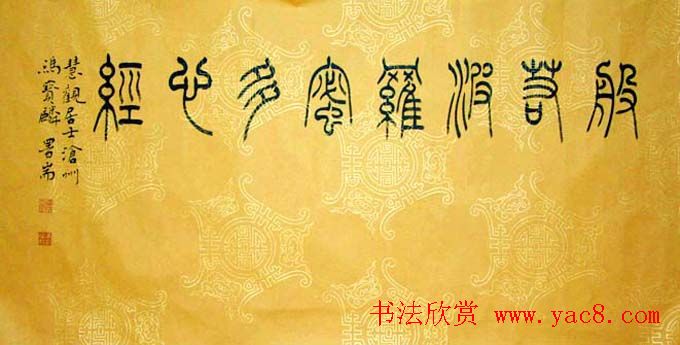 般若波羅蜜多心經
慧觀居士滄州
馮寶麟署耑
书法欣赏 www.yac8.com